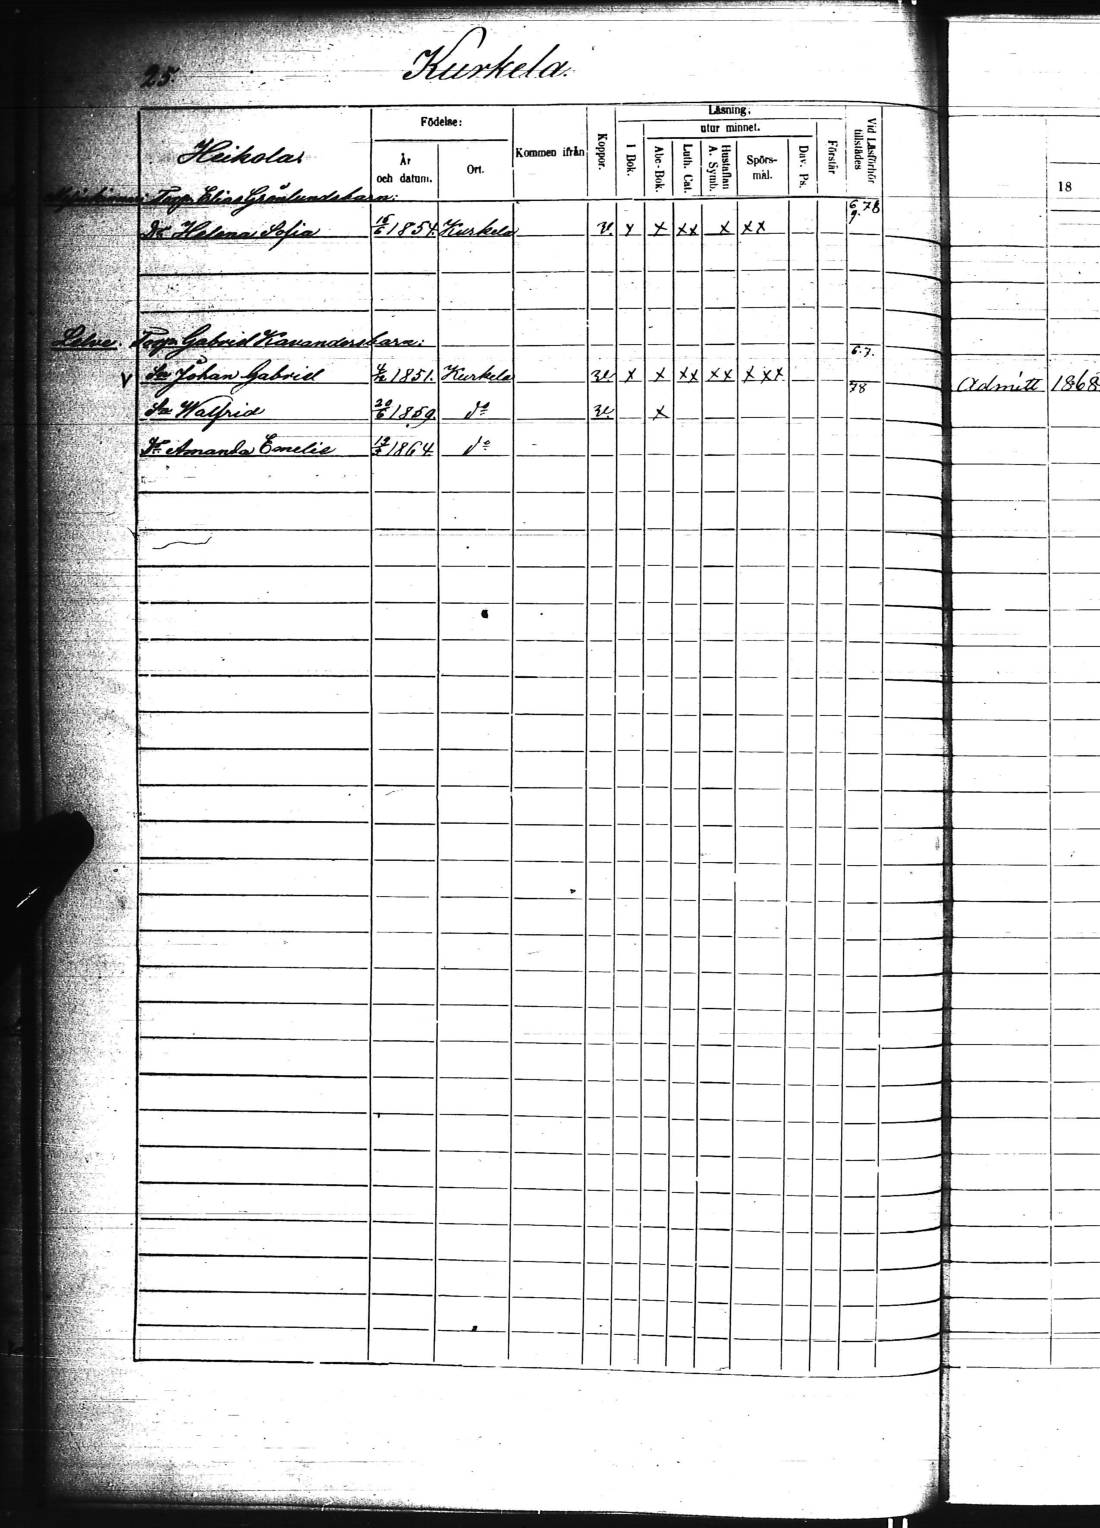 25. Kurkela.
Läsning;
Födelse: utur minnet.
Heikola År och datum. Ort. Kommen ifrån Koppor. I Bok. Abc-Bok. Luth. Cat. Hustaflan A. Symb. Spörs-mål. Dav. Ps. Förstår Vid Läsförhör tillstädes 18
Torp. Elias Grönlunds barn: 6. 78
Dr Helena Sofia 1854. Kurkela v. x x xx x xx 9.
Torp. Gabriel Kavanders barn: 6.7.
v Sn Johan Gabriel 1851. Kurkela v. x x xx xx xxx Admitt 1868
Sn Walfrid 20/6 1859. do v. x 78
Dr Amanda Emelie 1864 do